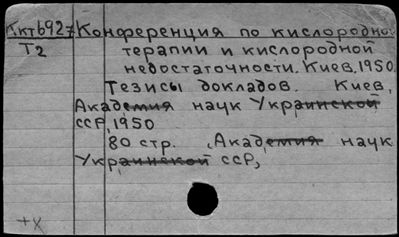 Ккт6927 Конференция по кислородной
Т2 терапии и кислородной
недостаточности. Киев, 1950.
Тезисы докладов. Киев,
Академия наук Украинской
ССР, 1950
80 стр. , Академия наук
Украинской ССР,
+х